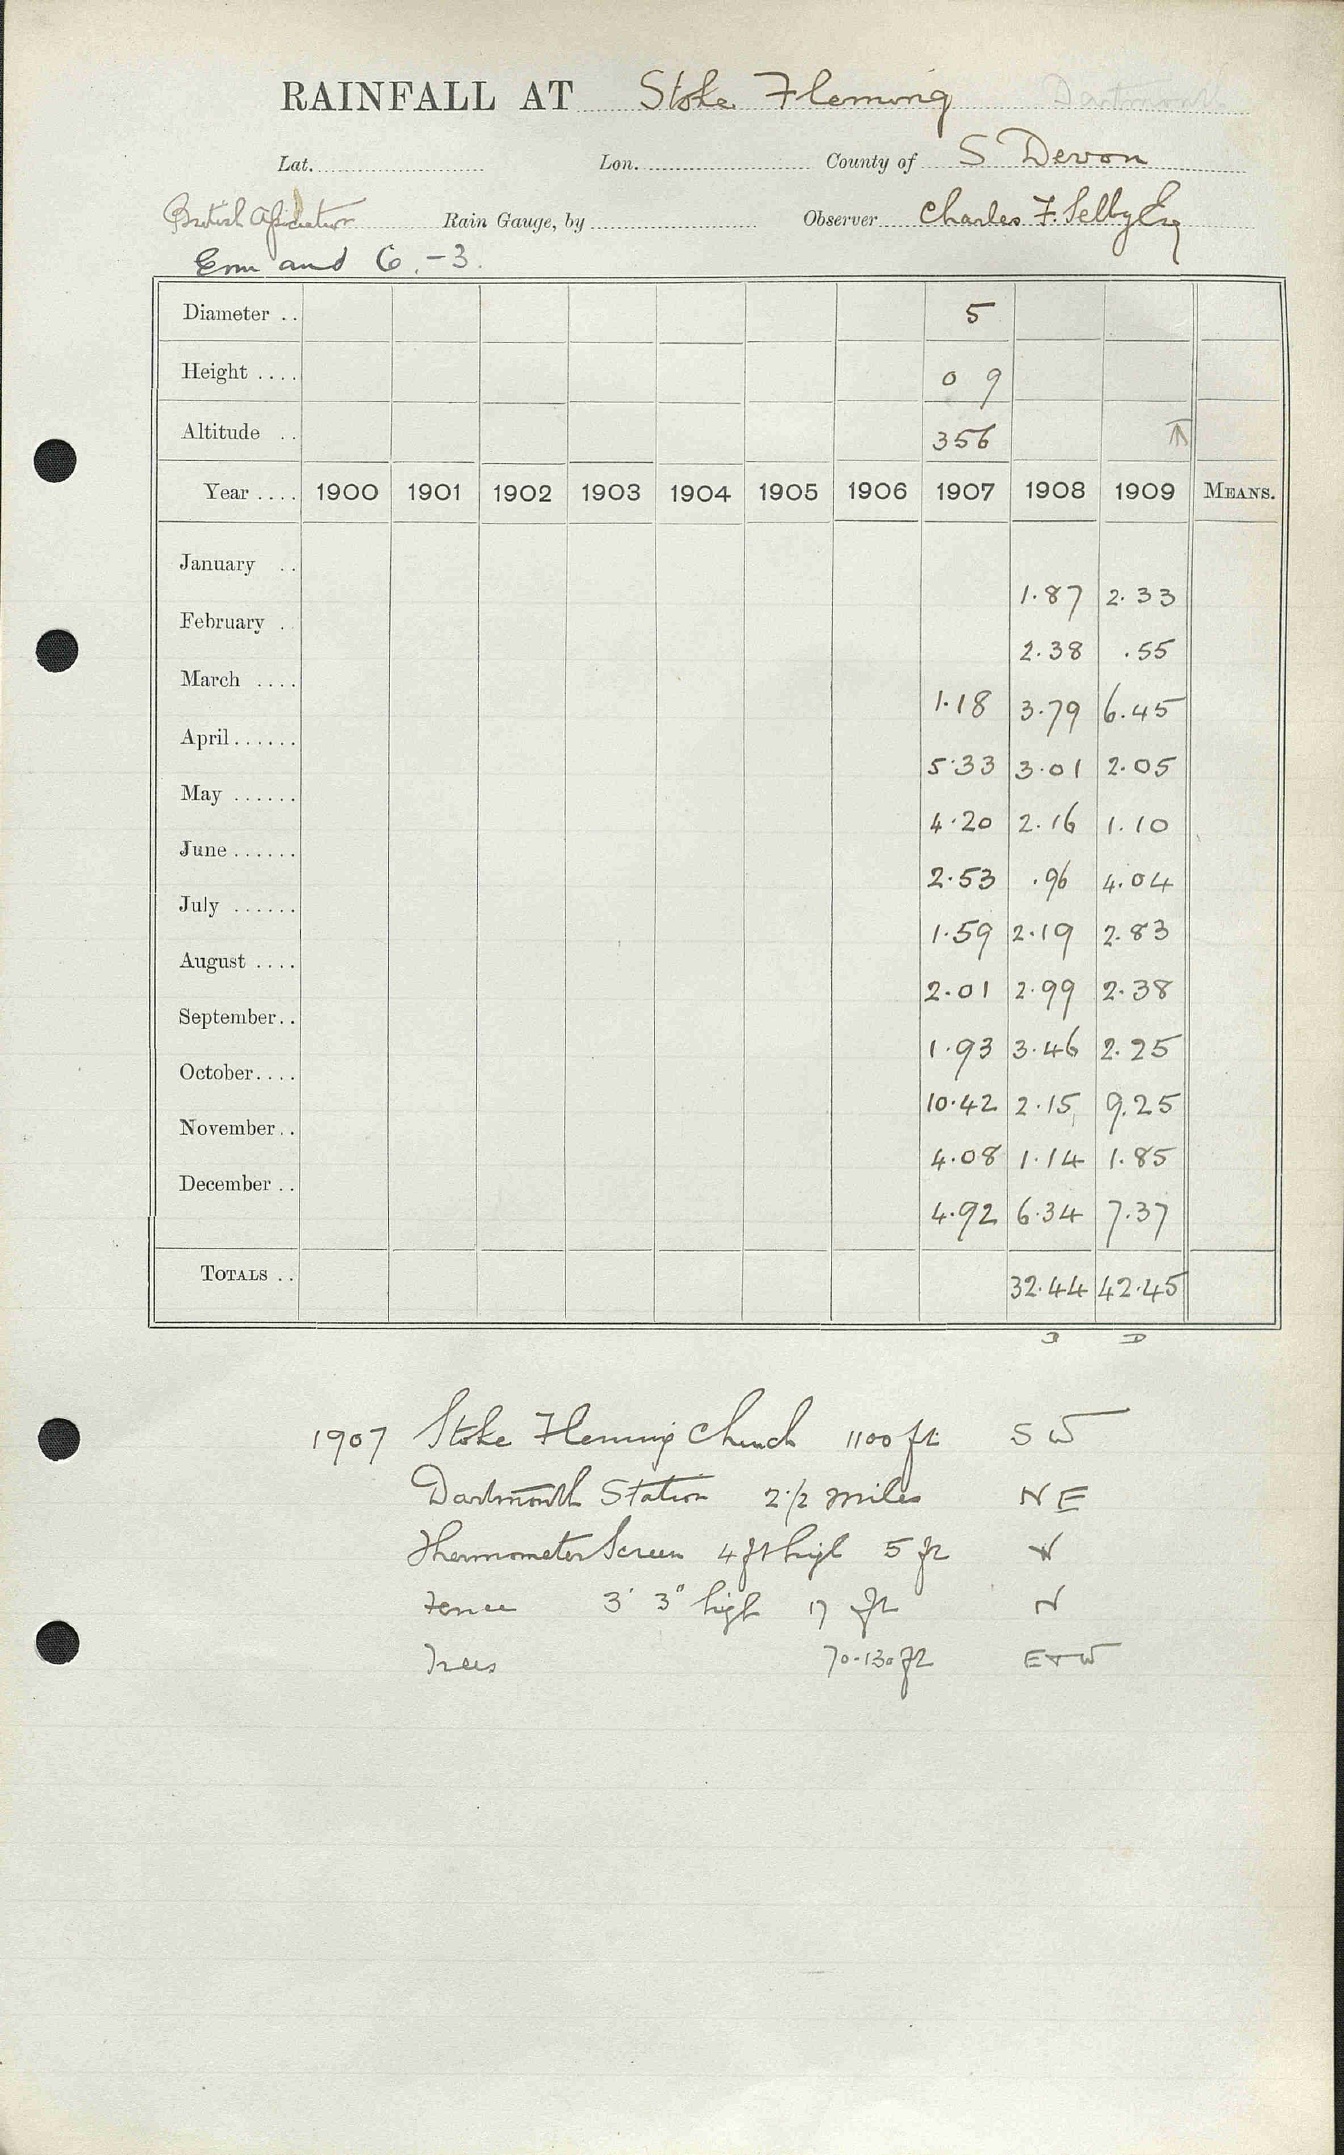 RAINFALL AT Stoke Fleming Dartmouth
Lat. Lon. County of S Devon
British Association Rain Gauge, by Observer Charles F. Selby Esq
and 6.-3.
Diameter .. 5
Height .... 0 9
Altitude .. 356
Year .... 1900 1901 1902 1903 1904 1905 1906 1907 1908 1909 MEANS.
January .. 1.87 2.33
February .. 2.38 .55
March .... 1.18 3.79 6.45
April...... 5.33 3.01 2.05
May ...... 4.20 2.16 1.10
June ...... 2.53 .96 4.04
July ...... 1.59 2.19 2.83
August .... 2.01 2.99 2.38
September.. 1.93 3.46 2.25
October.... 10.42 2.15 9.25
November.. 4.08 1.14 1.85
December .. 4.92 6.34 7.37
TOTALS .. 32.44 42.45
1907 Stoke Fleming Church 1100 ft SW
Dartmouth Station 2 1/2 miles NE
Thermometer Screen 4 ft high 5 ft W
Fence 3' 3" high 17 ft N
Trees 70-130 ft E + W